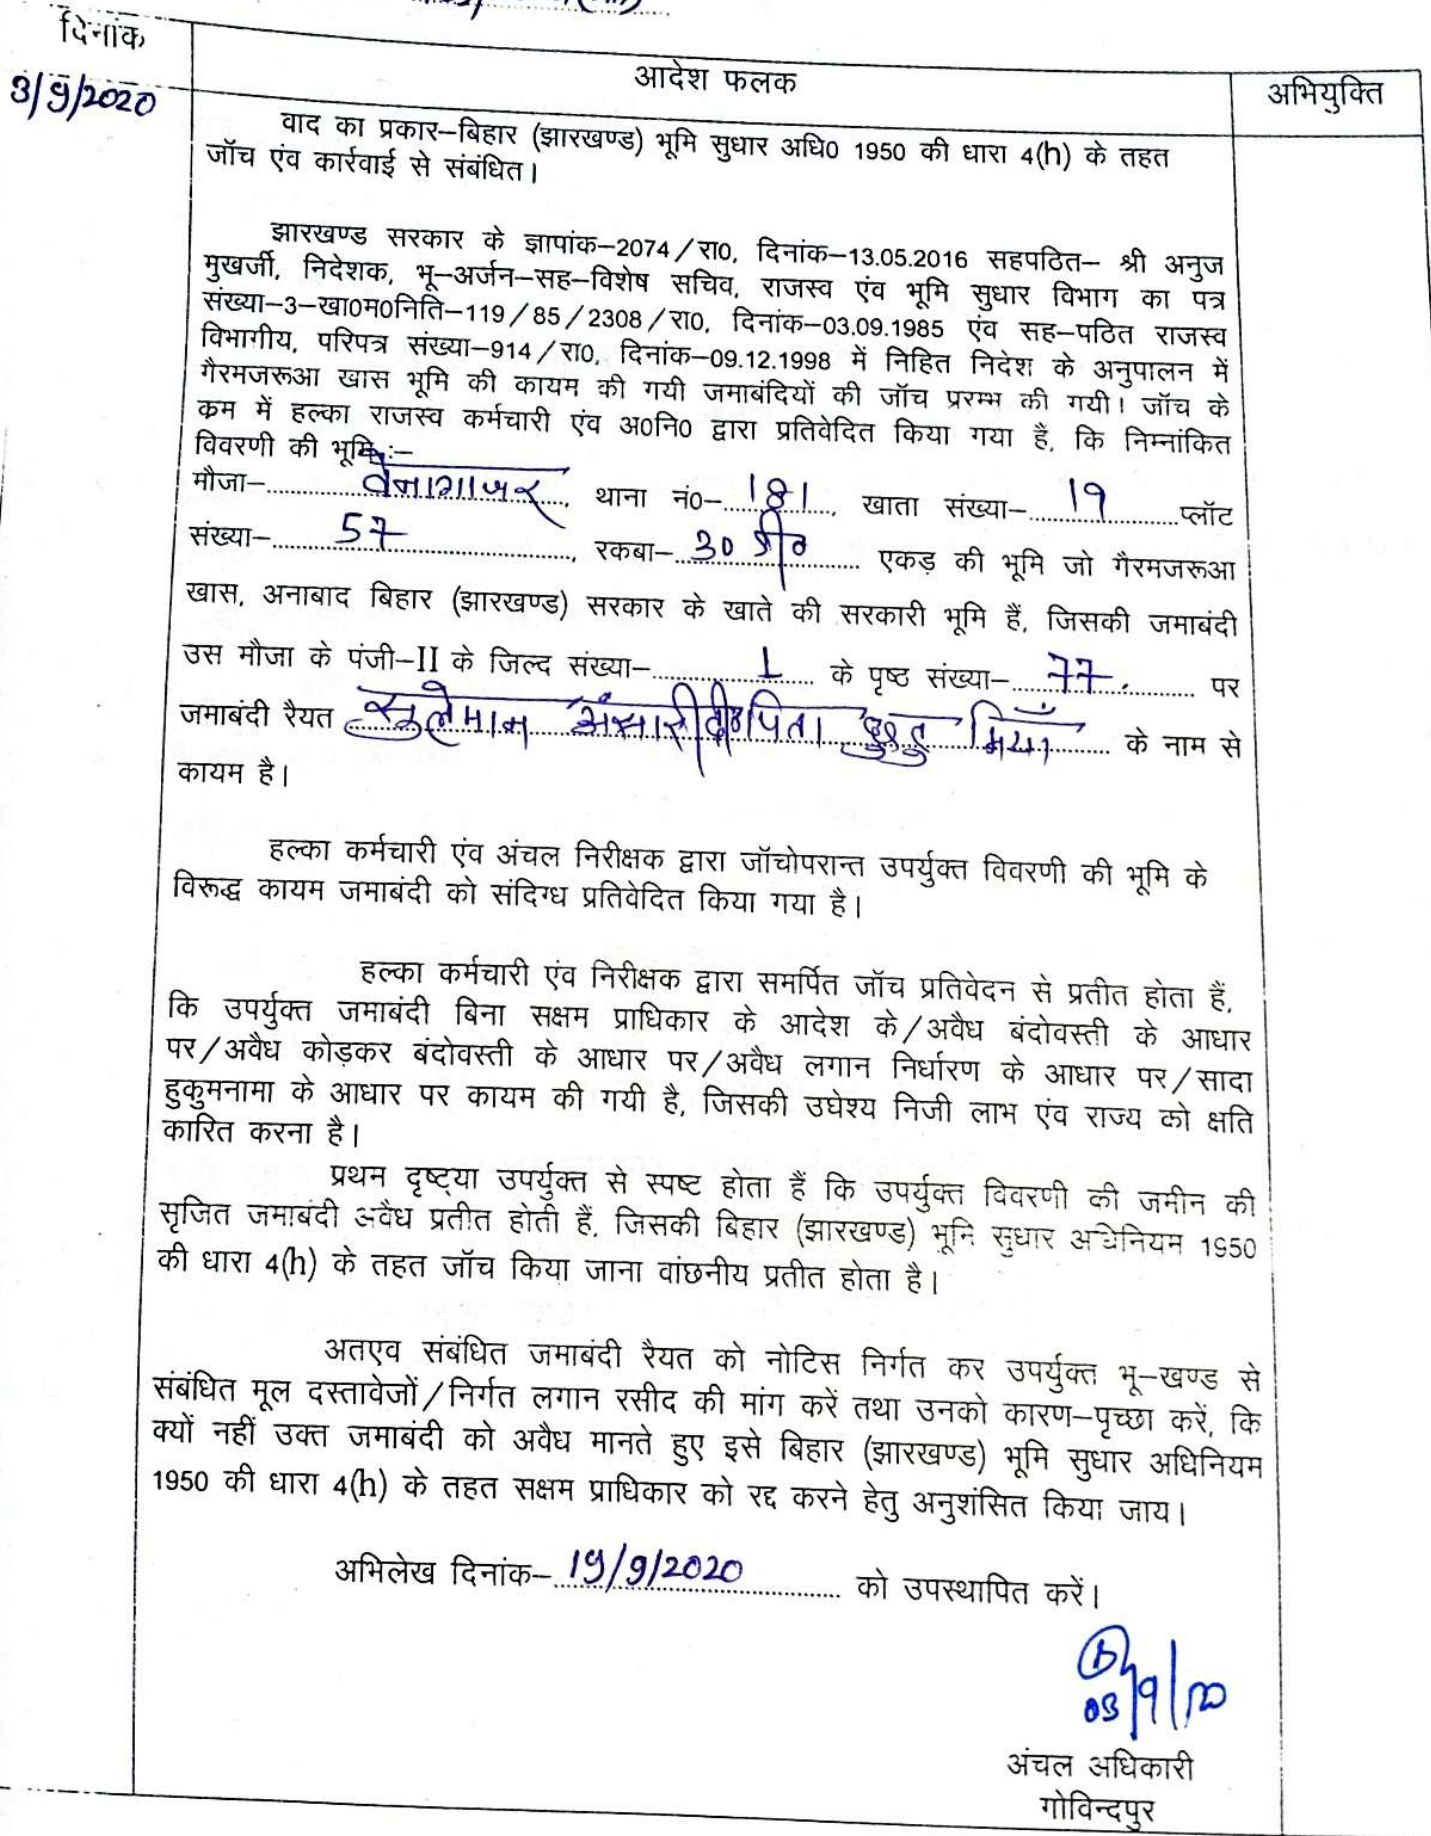 दिनांक
आदेश फलक
अभियुक्ति
3/9/2020
वाद का प्रकार–बिहार (झारखण्ड) भूमि सुधार अधि0 1950 की धारा 4(h) के तहत
जॉच एंव कार्रवाई से संबंधित।
झारखण्ड सरकार के ज्ञापांक–2074/रा0, दिनांक–13.05.2016 सहपठित– श्री अनुज
मुखर्जी, निदेशक, भू–अर्जन–सह–विशेष सचिव, राजस्व एंव भूमि सुधार विभाग का पत्र
संख्या–3–खा0म0निति–119/85/2308/रा0, दिनांक–03.09.1985 एंव सह–पठित राजस्व
विभागीय, परिपत्र संख्या–914/रा0, दिनांक–09.12.1998 में निहित निदेश के अनुपालन में
गैरमजरूआ खास भूमि की कायम की गयी जमाबंदियों की जॉच प्ररम्भ की गयी। जॉच के
क्रम में हल्का राजस्व कर्मचारी एंव अ0नि0 द्वारा प्रतिवेदित किया गया है, कि निम्नांकित
विवरणी की भूमि :–
मौजा– थाना नं0– 181, खाता संख्या– 19 प्लॉट
संख्या– 57, रकबा– 30 एकड़ की भूमि जो गैरमजरूआ
खास, अनाबाद बिहार (झारखण्ड) सरकार के खाते की सरकारी भूमि हैं, जिसकी जमाबंदी
उस मौजा के पंजी–II के जिल्द संख्या– 1 के पृष्ठ संख्या– 77. पर
जमाबंदी रैयत सुलेमान अंसारी पिता मियाँ के नाम से
कायम है।
हल्का कर्मचारी एंव अंचल निरीक्षक द्वारा जॉचोपरान्त उपर्युक्त विवरणी की भूमि के
विरूद्ध कायम जमाबंदी को संदिग्ध प्रतिवेदित किया गया है।
हल्का कर्मचारी एंव निरीक्षक द्वारा समर्पित जॉच प्रतिवेदन से प्रतीत होता हैं,
कि उपर्युक्त जमाबंदी बिना सक्षम प्राधिकार के आदेश के/अवैध बंदोवस्ती के आधार
पर/अवैध कोड़कर बंदोवस्ती के आधार पर/अवैध लगान निर्धारण के आधार पर/सादा
हुकुमनामा के आधार पर कायम की गयी है, जिसकी उघेश्य निजी लाभ एंव राज्य को क्षति
कारित करना है।
प्रथम दृष्ट्या उपर्युक्त से स्पष्ट होता हैं कि उपर्युक्त विवरणी की जमीन की
सृजित जमाबंदी अवैध प्रतीत होती हैं, जिसकी बिहार (झारखण्ड) भूमि सुधार अधिनियम 1950
की धारा 4(h) के तहत जॉच किया जाना वांछनीय प्रतीत होता है।
अतएव संबंधित जमाबंदी रैयत को नोटिस निर्गत कर उपर्युक्त भू–खण्ड से
संबंधित मूल दस्तावेजों/निर्गत लगान रसीद की मांग करें तथा उनको कारण–पृच्छा करें, कि
क्यों नहीं उक्त जमाबंदी को अवैध मानते हुए इसे बिहार (झारखण्ड) भूमि सुधार अधिनियम
1950 की धारा 4(h) के तहत सक्षम प्राधिकार को रद्द करने हेतु अनुशंसित किया जाय।
अभिलेख दिनांक– 19/9/2020 को उपस्थापित करें।
03/9/20
अंचल अधिकारी
गोविन्दपुर